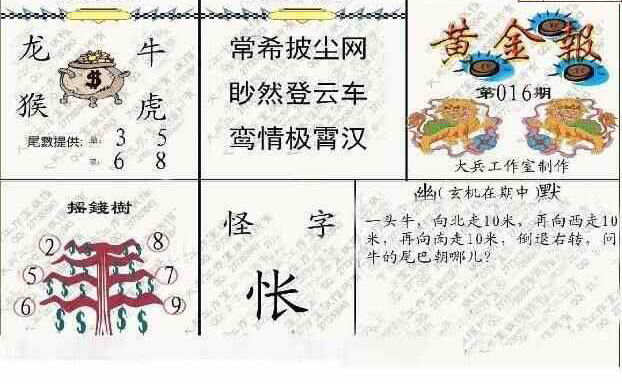 龙 牛
猴 虎
尾數提供: 單: 3 5
双: 6 8
常希披尘网
眇然登云车
鸾情极霄汉
黄金報
第016期
大兵工作室制作
摇錢樹
2 8
5 7
6 9
怪 字
怅
幽(玄机在期中)默
一头牛，向北走10米，再向西走10
米，再向南走10米，倒退右转，问
牛的尾巴朝哪儿?